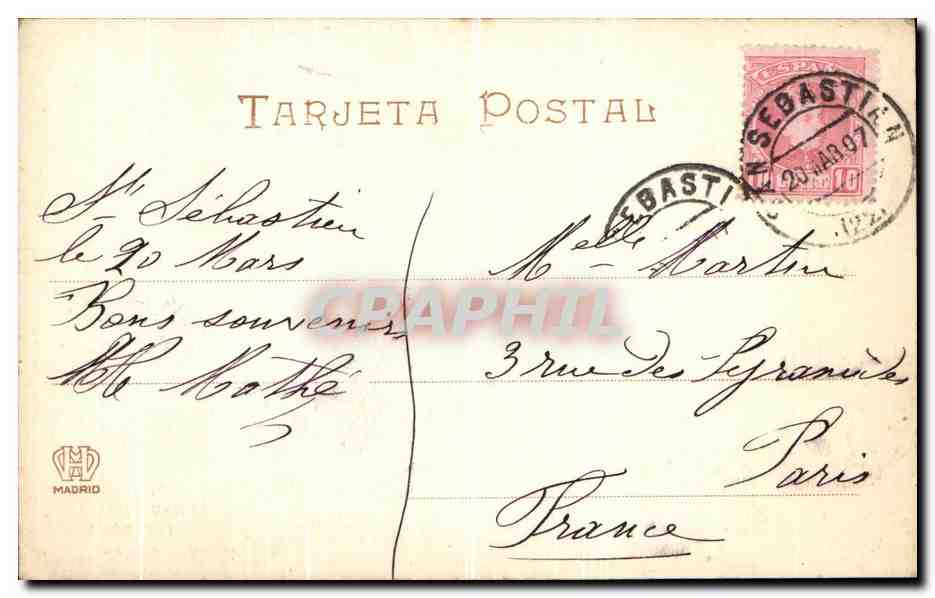 TARJETA POSTAL
ESPAÑA
SAN SEBASTIAN
20 MAR 07
10 10
EBASTI
St Sébastien
le 20 Mars
Bons souvenirs
Mathé
Melle Martin
3 rue des Pyrannées
Paris
France
CPAPHIL
MADRID